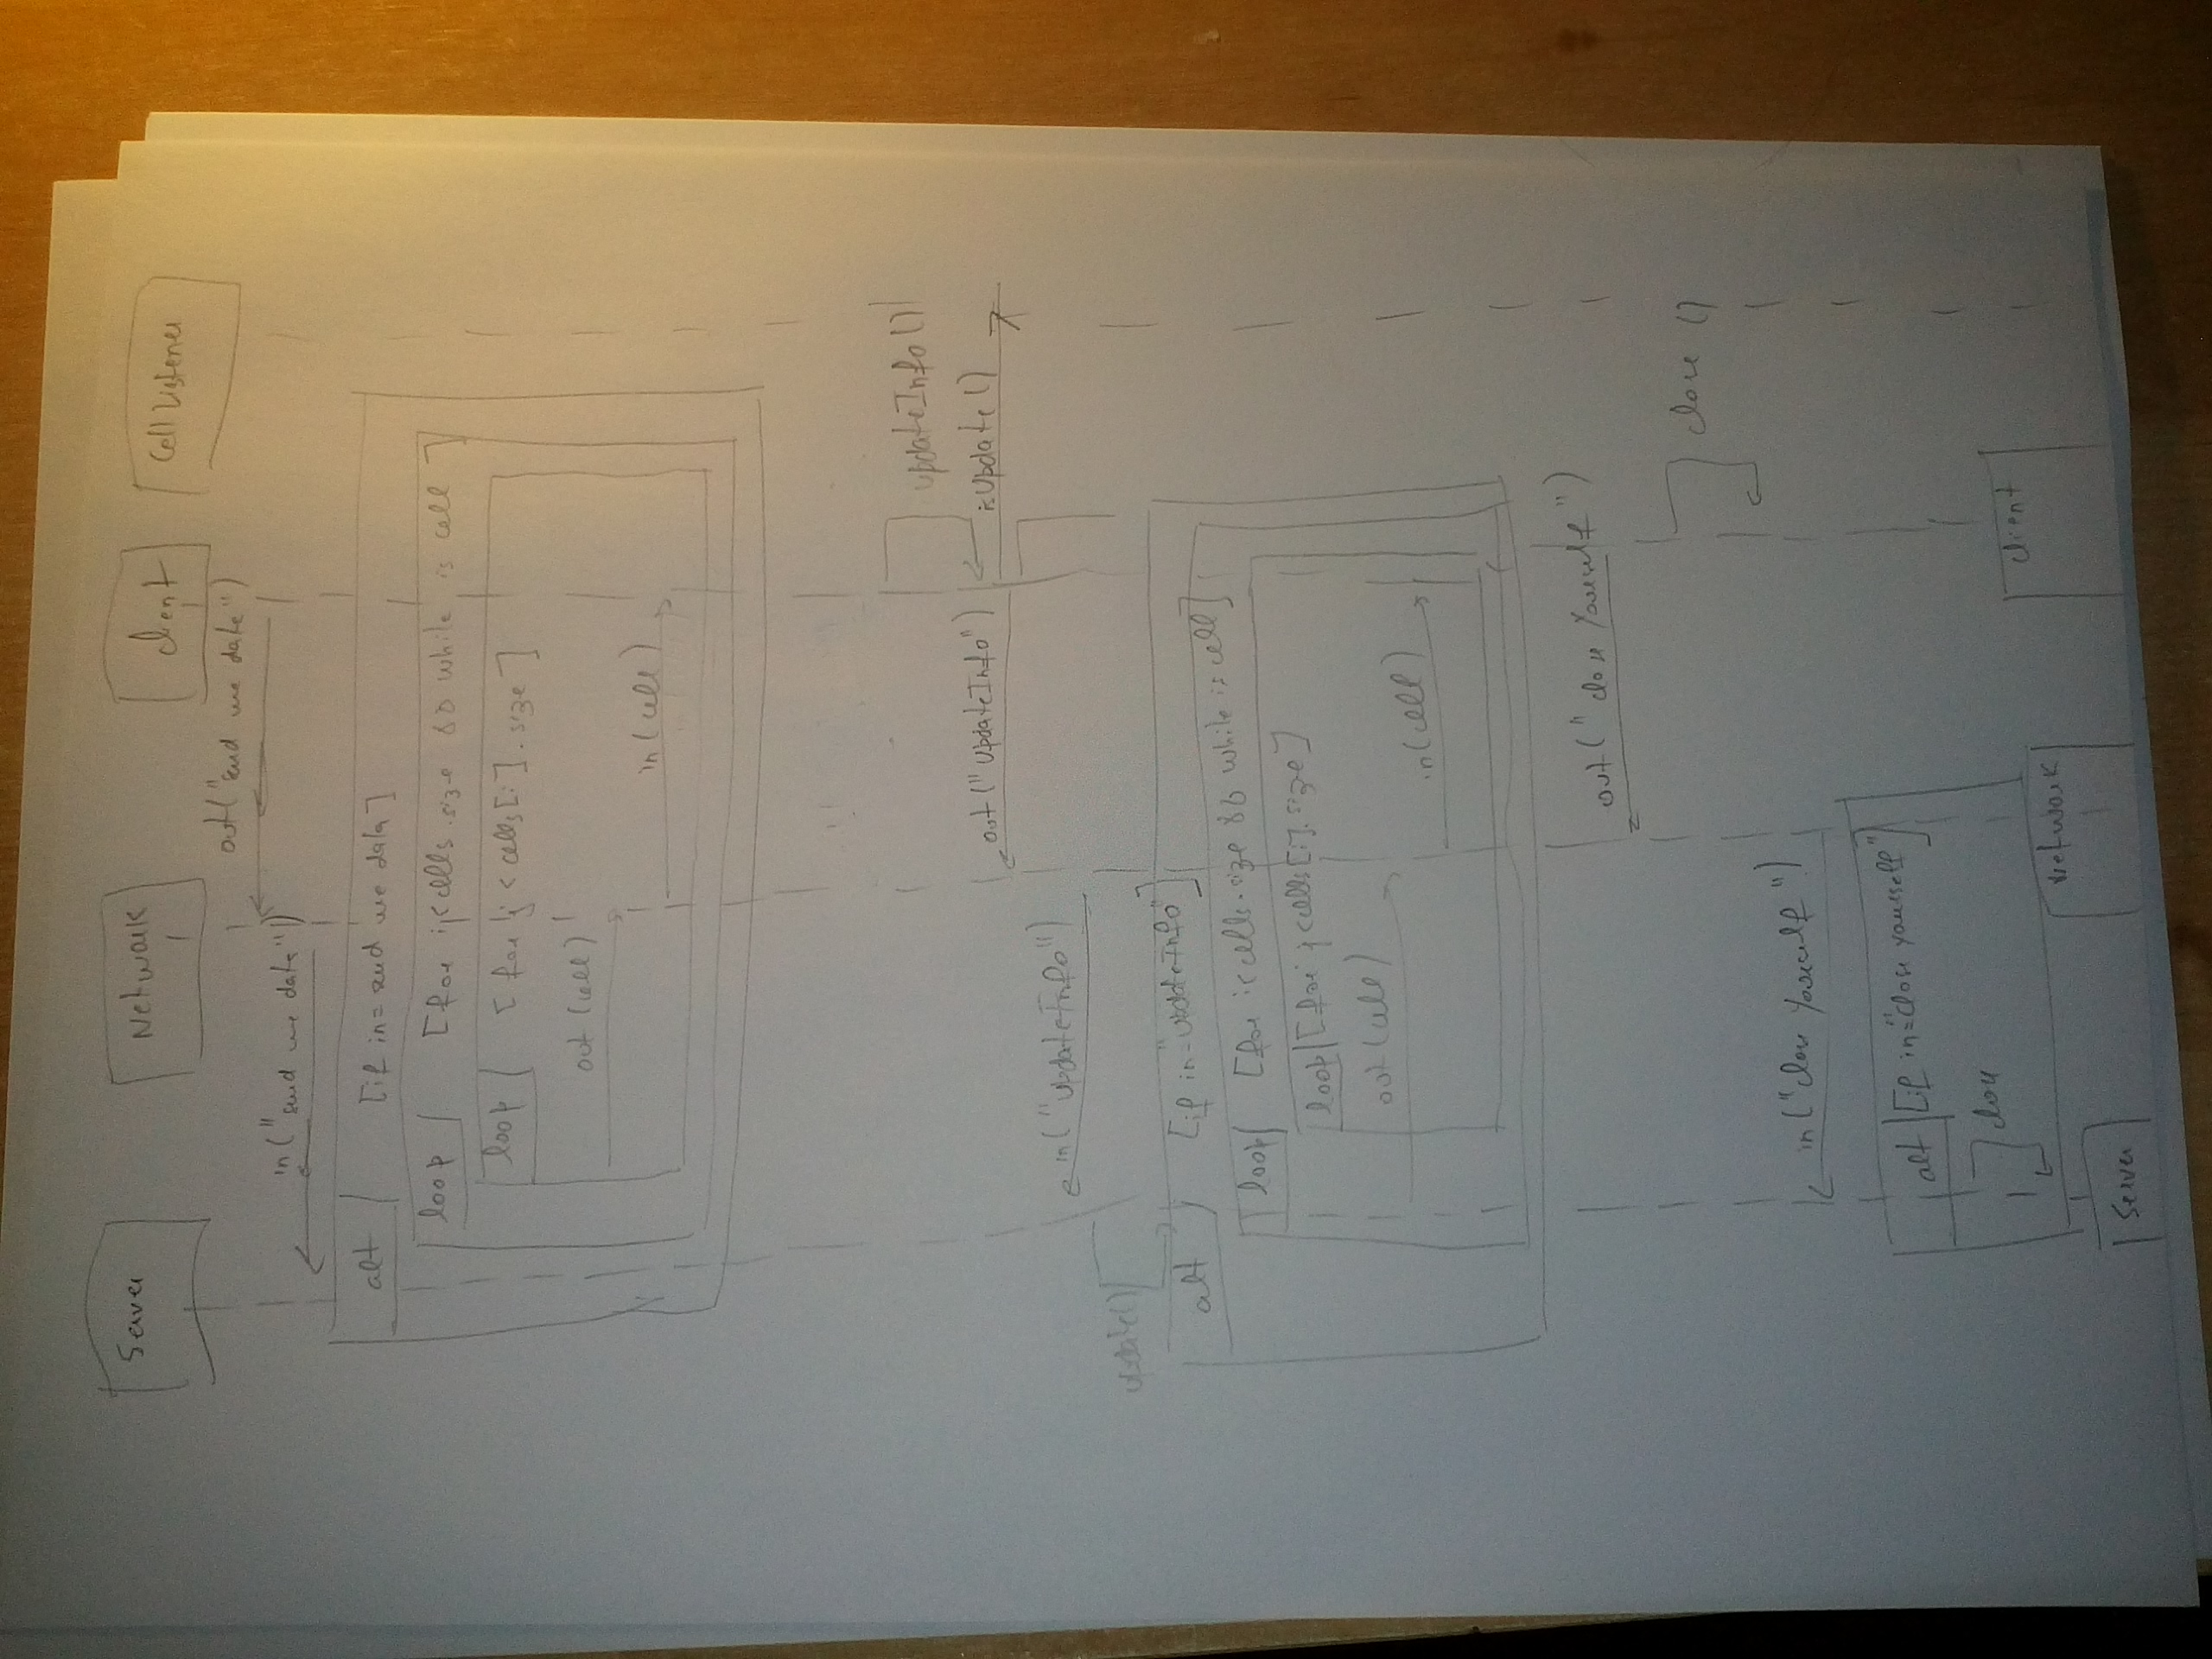 Server
Network
Client
Cell Listener
out("send me data")
in("send me data")
alt
[if in=send me data]
loop
[for i<cells.size && while is cell]
loop
[for j<cells[i].size]
out(cell)
in(cell)
updateInfo()
isUpdate()
out("updateInfo")
in("updateInfo")
update()
alt
[if in="updateInfo"]
loop
[for i<cells.size && while is cell]
loop
[for j<cells[i].size]
out(cell)
in(cell)
out("close yourself")
close()
in("close yourself")
alt
[if in="close yourself"]
close
Server
Network
Client